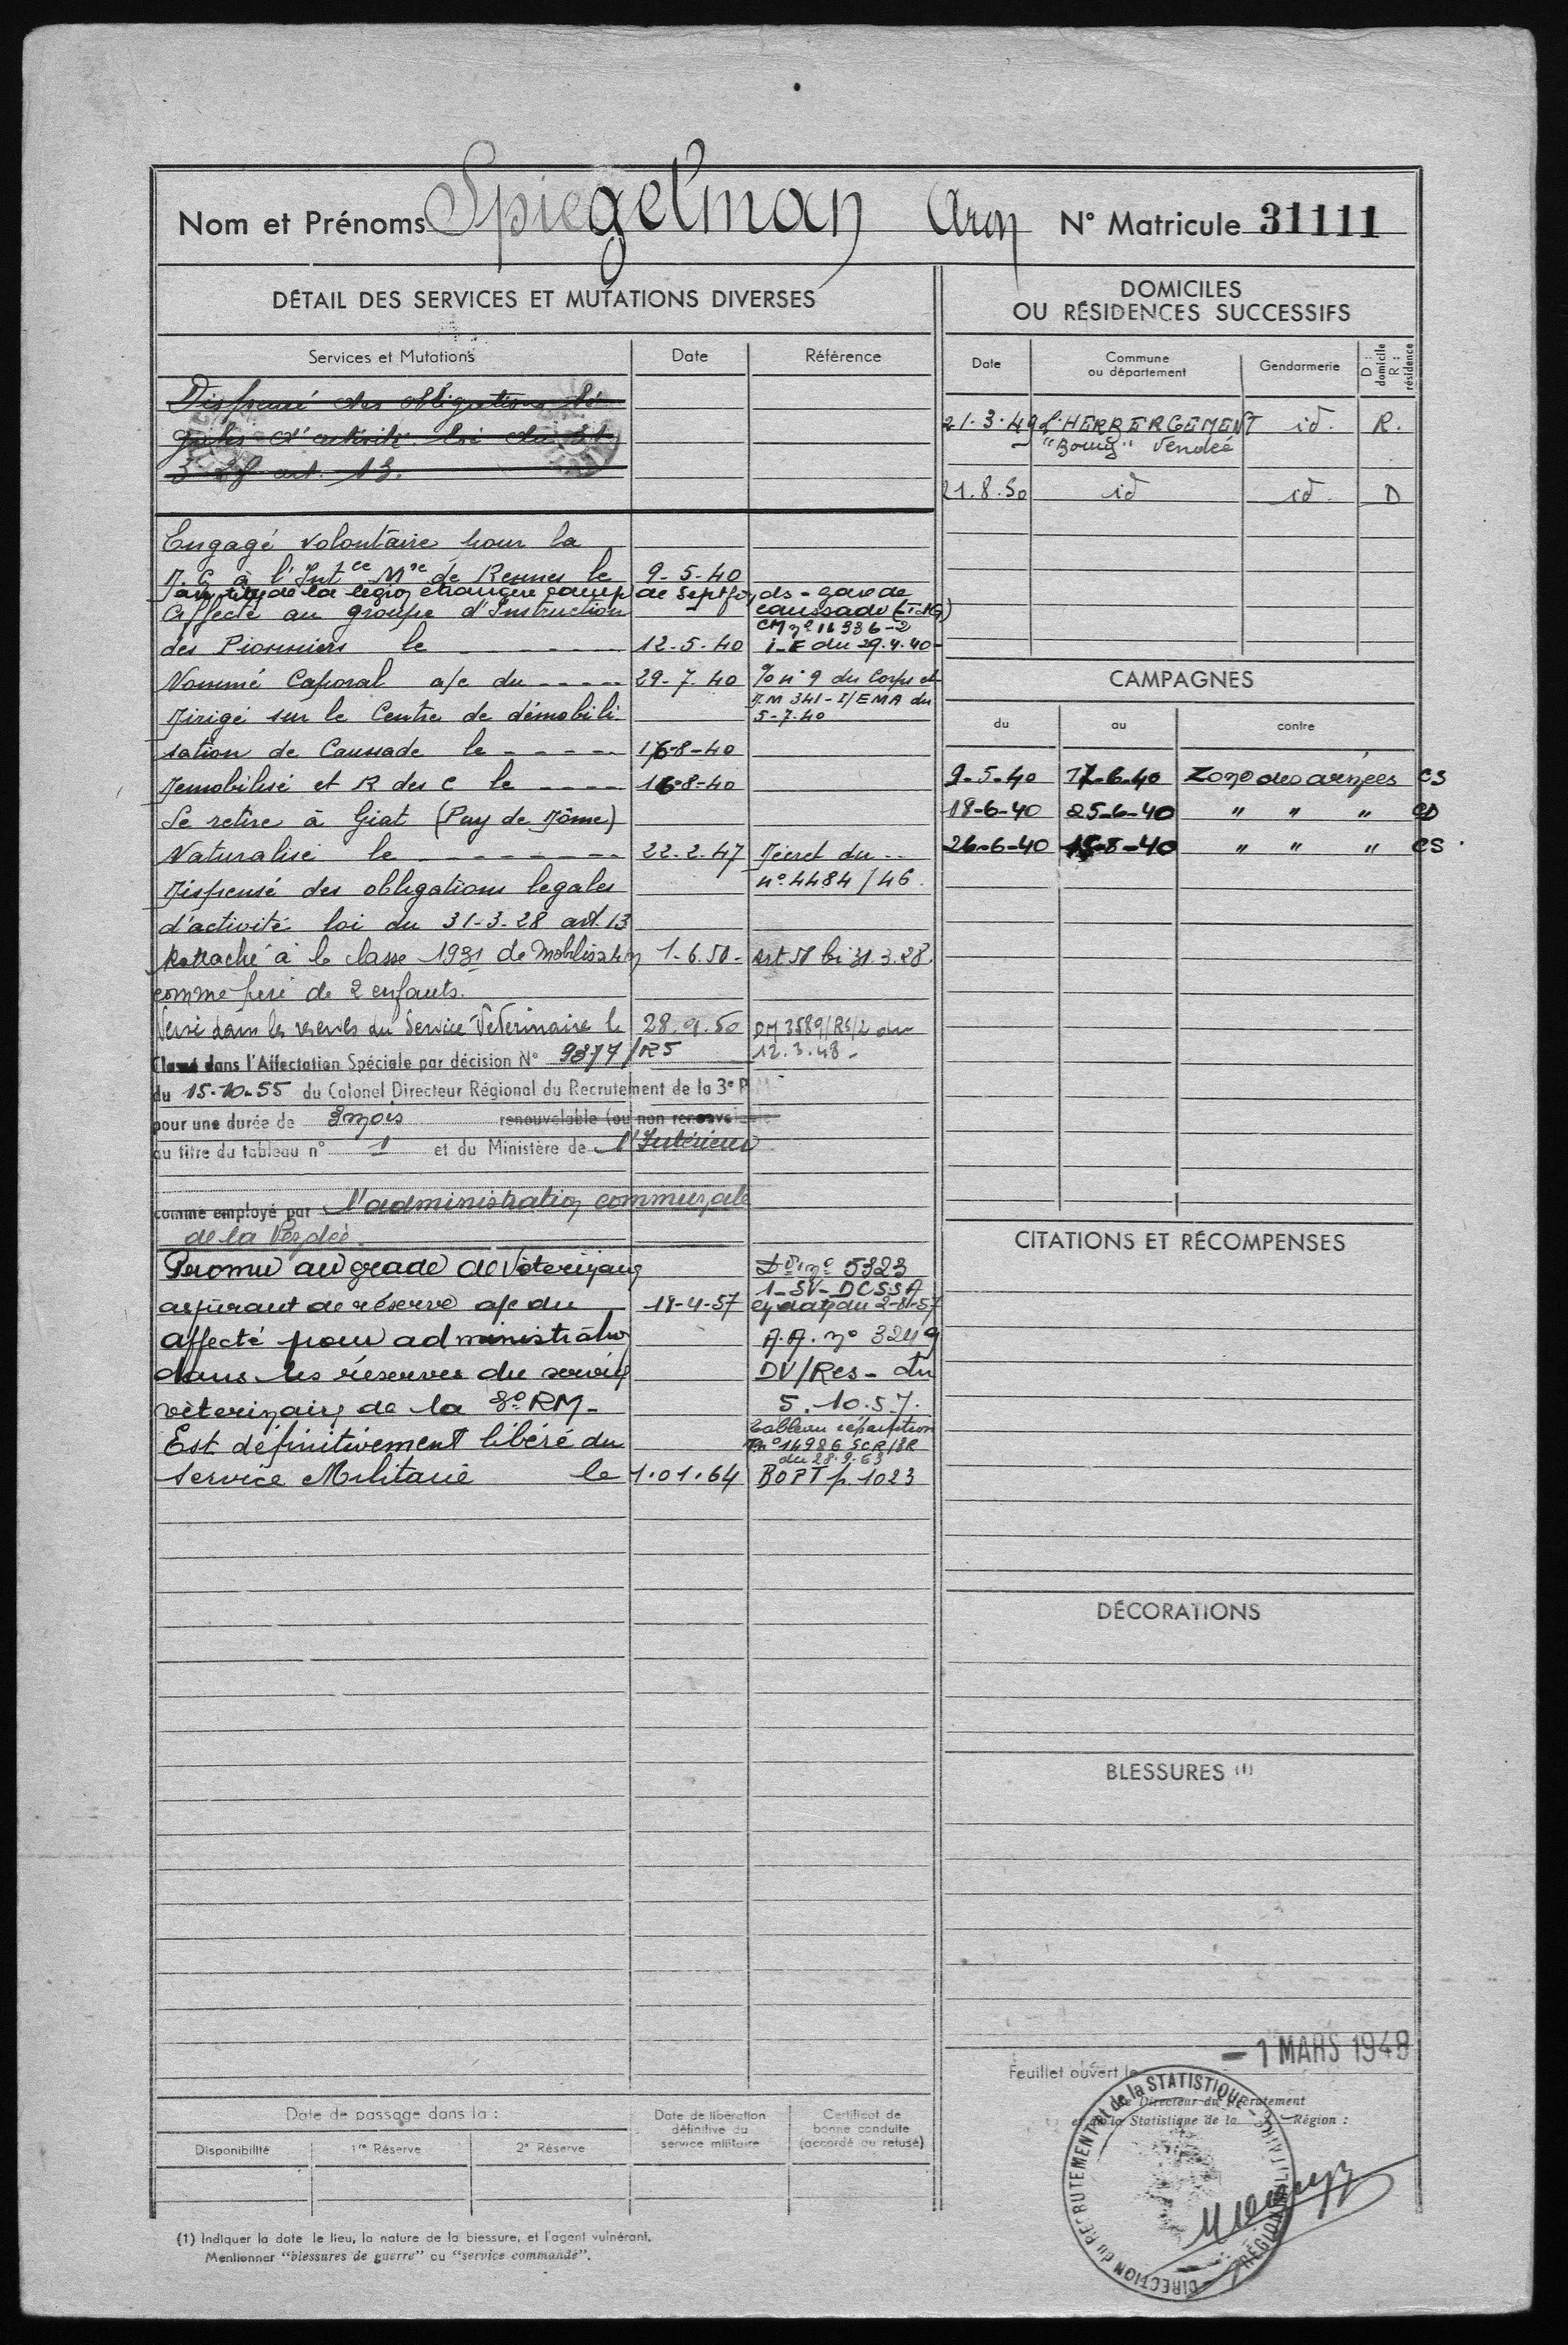 Nom et Prénoms Spiegelman Aron N° Matricule 31111
DÉTAIL DES SERVICES ET MUTATIONS DIVERSES
Services et Mutations Date Référence
Dispensé des obligations lé-
gales d'activité loi du 31
3-28 art. 13.
Engagé volontaire pour la
D.G à l'Intce Mre de Rennes le 9-5-40
au titre de la légion étrangère camp de Septfonds - gare de
Affecté au groupe d'Instruction caussade (T.&G)
CM n° 16336-2
des Pionniers le 12-5-40 i-E du 29.4.40-
Nommé Caporal a/c du 29-7-40 %n°9 du Corps et
D.M 341-I/EMA du
Dirigé sur le Centre de démobili- 5-7-40
sation de Caussade le 16-8-40
Demobilisé et R des C le 16-8-40
Se retire à Giat (Puy de Dôme)
Naturalisé le 22.2.47 Décret du
Dispensé des obligations légales n° 4484/46.
d'activité loi du 31-3-28 art. 13
Rattaché à la classe 1931 de Mobilisation 1-6.50- Art 58 loi 31.3.28
comme père de 2 enfants.
Versé dans les réserves du Service Vétérinaire le 28.9.50 DM 3589/RS/2 du
12.3.48-
Classé dans l'Affectation Spéciale par décision N° 9377/RS
du 15-10-55 du Colonel Directeur Régional du Recrutement de la 3e RM
pour une durée de 3 mois renouvelable (ou non renouvelable
au titre du tableau n° 1 et du Ministère de l'Intérieur
comme employé par l'administration communale
de la Vendée.
Promu au grade de Vétérinaire Don n° 5323
1-SV-DCSSA
aspirant de réserve a/c du 18-4-57 en date du 2-8-57
affecté pour administration A.A. n° 3249
dans les réserves du service DV/Res- du
vétérinaire de la 3e RM- 5.10.57.
Est définitivement libéré du Tableau répartition
n° 14986 SCR/SR
du 28.9.63
Service Militaire le 1.01.64 BOPT p.1023
Date de passage dans la :
Disponibilité 1re Réserve 2e Réserve
Date de libération définitive du service militaire
Certificat de bonne conduite (accordé ou refusé)
(1) Indiquer la date le lieu, la nature de la blessure, et l'agent vulnérant.
Mentionner "blessures de guerre" ou "service commandé".
DOMICILES
OU RÉSIDENCES SUCCESSIFS
Date Commune ou département Gendarmerie D : domicile R : résidence
21-3-49 L'HERBERGEMENT id. R.
"Bourg" Vendée
21.8.50 id id D
CAMPAGNES
du au contre
9-5-40 17-6-40 Zone des armées CS
18-6-40 25-6-40 " " " CD
26-6-40 15-8-40 " " " CS
CITATIONS ET RÉCOMPENSES
DÉCORATIONS
BLESSURES (1)
Feuillet ouvert le -1 MARS 1948
Le Directeur du Recrutement
et de la Statistique de la Région :
DIRECTION du RECRUTEMENT et de la STATISTIQUE - 3e RÉGION MILITAIRE